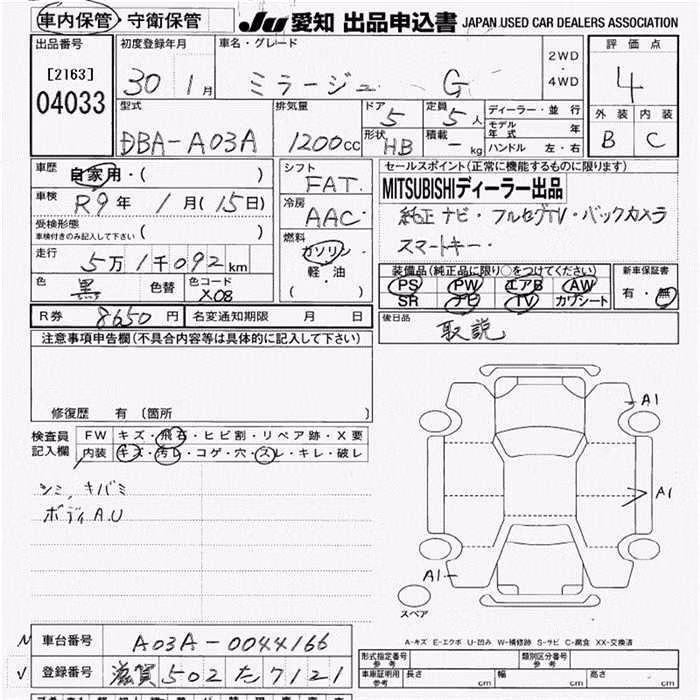 車内保管・守衛保管 JU 愛知 出品申込書 JAPAN USED CAR DEALERS ASSOCIATION
出品番号 初度登録年月 車名・グレード 2WD・4WD 評価点
[2163] 30 1月 ミラージュ G 4
04033 型式 排気量 ドア 5 定員 5人 ディーラー・並行 外装 内装
DBA-A03A 1200cc 形状 HB 積載 - kg モデル年式 年 B C
ハンドル 左・右
車歴 自家用・( ) シフト FAT セールスポイント(正常に機能するものに限ります)
車検 R9年 1月(15日) 冷房 AAC MITSUBISHIディーラー出品
受検形態 車検付きのみ記入して下さい ( ) 燃料 純正ナビ・フルセグTV・バックカメラ
走行 5万1千092km ガソリン スマートキー・
色 黒 色替 色コード X08 軽・油 ( ) 装備品(純正品に限り○をつけてください) 新車保証書
PS PW エアB AW 有・無
SR ナビ TV カワシート
R券 8650円 名変通知期限 月 日 後日品 取説
注意事項申告欄(不具合内容等は具体的に記入して下さい)
修復歴 有 〔箇所 〕
検査員記入欄 FW キズ・飛石・ヒビ割・リペア跡・X要
内装 キズ・汚レ・コゲ・穴・スレ・キレ・破レ
シミ、キバミ
ボディA.U
A1
A1
A1
スペア
A-キズ E-エクボ U-凹み W-補修跡 S-サビ C-腐食 XX-交換済
車台番号 A03A-0044166
形式指定番号 参考 類別区分番号 参考
登録番号 滋賀502た7121
車庫証明用 参考 長さ cm 幅 cm 高さ cm